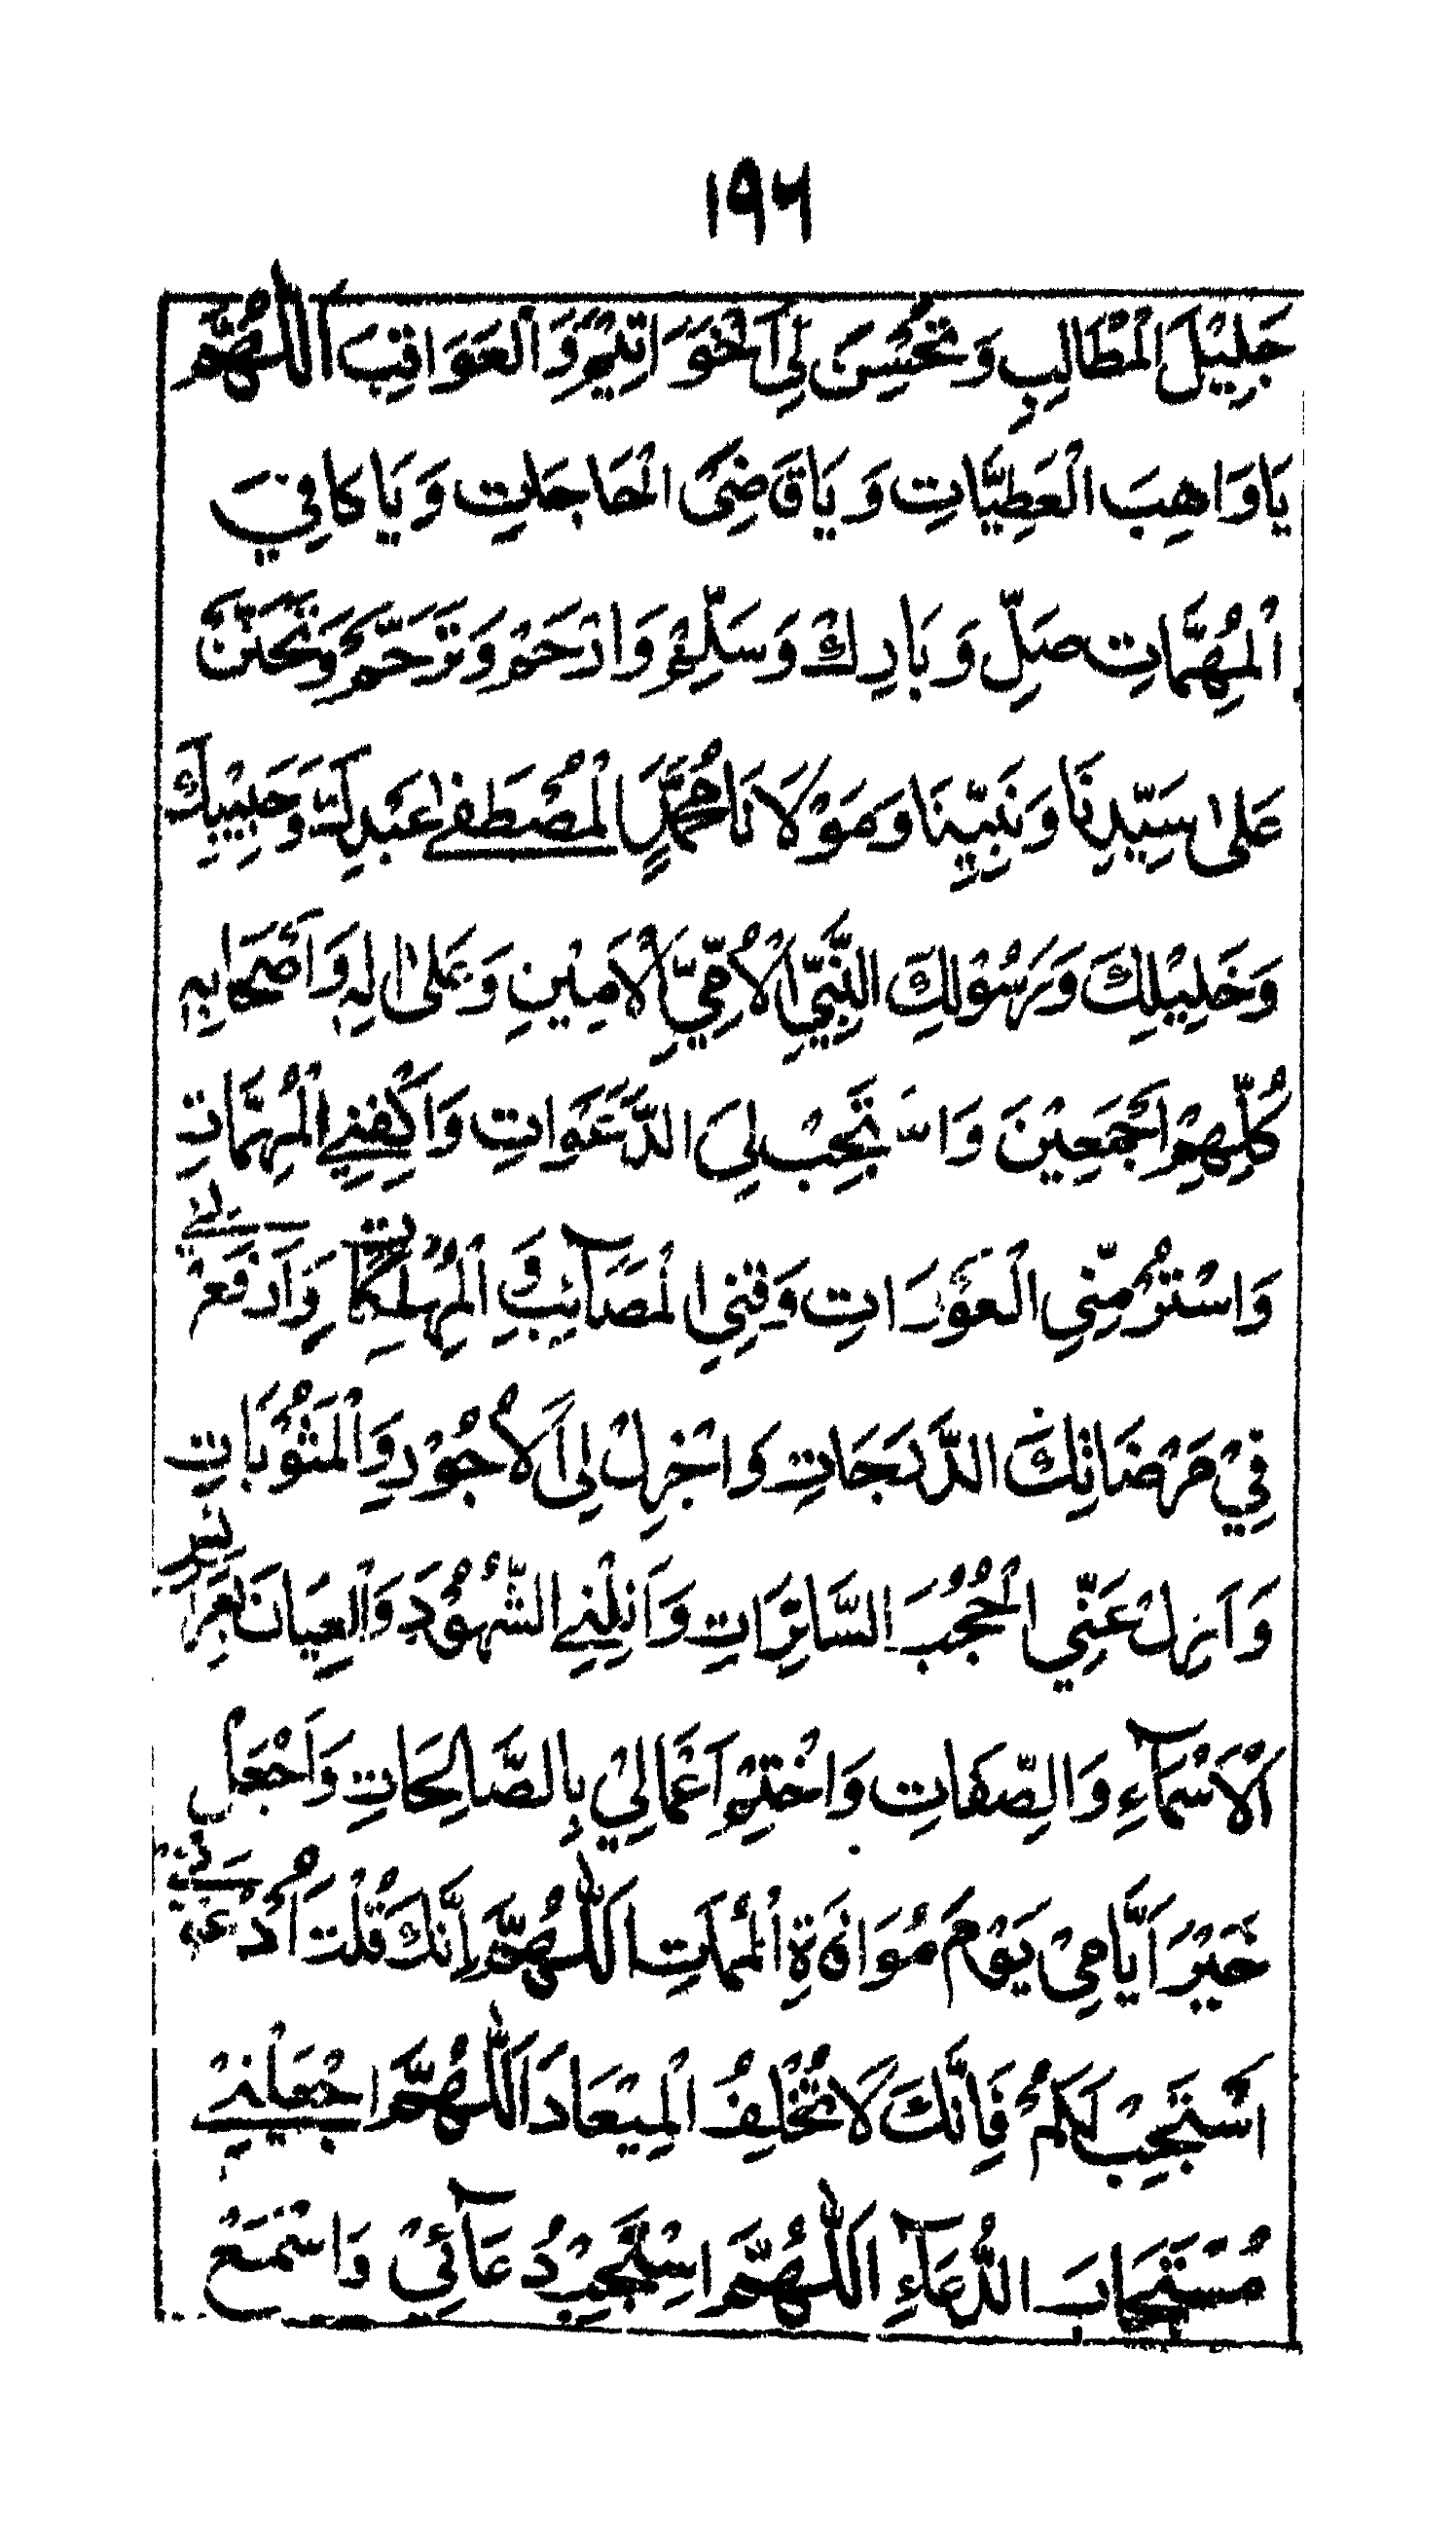 ۱۹۶
جَلِيْلَ الْمَطَالِبِ وَتُحْسِنَ لِيَ الْخَوَاتِيْمَ وَالْعَوَاقِبَ اَللّٰهُمَّ
يَا وَاهِبَ الْعَطِيَّاتِ وَيَا قَاضِىَ الْحَاجَاتِ وَيَا كَافِيَ
الْمُهِمَّاتِ صَلِّ وَبَارِكْ وَسَلِّمْ وَارْحَمْ وَتَرَحَّمْ وَتَحَنَّنْ
عَلٰى سَيِّدِنَا وَنَبِيِّنَا وَمَوْلَانَا مُحَمَّدٍ الْمُصْطَفٰے عَبْدِكَ وَحَبِيْبِكَ
وَخَلِيْلِكَ وَرَسُوْلِكَ النَّبِيِّ الْاُمِّيِّ الْاَمِيْنِ وَعَلٰى اٰلِهٖ وَاَصْحَابِهٖ
كُلِّهِمْ اَجْمَعِيْنَ وَاسْتَجِبْ لِيَ الدَّعَوَاتِ وَاكْفِنِے الْمُهِمَّاتِ
وَاسْتُرْ مِنِّي الْعَوَرَاتِ وَقِنِي الْمَصَآئِبَ الْمُهْلِكَاتِ وَارْفَعْ لِے
فِيْ مَرْضَاتِكَ الدَّرَجَاتِ وَاَجْزِلْ لِيَ الْاُجُوْرَ وَالْمَثُوْبَاتِ
وَاَزِلْ عَنِّي الْحُجُبَ السَّاتِرَاتِ وَاَنِلْنِے الشُّهُوْدَ وَالْعِيَانَ بِغَرَائِبِ
الْاَسْمَآءِ وَالصِّفَاتِ وَاخْتِمْ اَعْمَالِيْ بِالصَّالِحَاتِ وَاجْعَلْ
خَيْرَ اَيَّامِيْ يَوْمَ مُوَافَاةِ الْمَمَاتِ اَللّٰهُمَّ اِنَّكَ قُلْتَ اُدْعُوْنِے
اَسْتَجِبْ لَكُمْ فَاِنَّكَ لَا تُخْلِفُ الْمِيْعَادَ اَللّٰهُمَّ اجْعَلْنِےْ
مُسْتَجَابَ الدُّعَآءِ اَللّٰهُمَّ اسْتَجِبْ دُعَآئِيْ وَاسْمَعْ